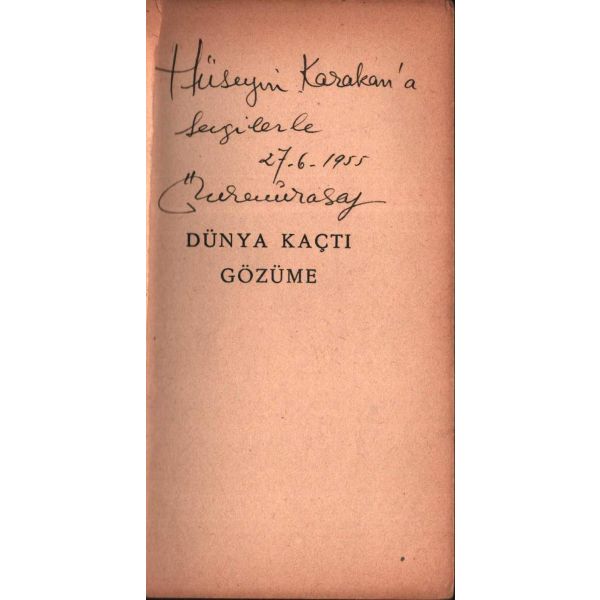 Hüseyin Karakan'a
sevgilerle
27-6-1955
Özdemirasaf
DÜNYA KAÇTI
GÖZÜME